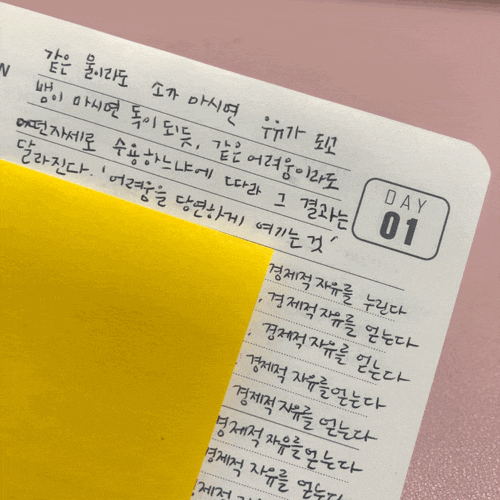 N
같은 물이라도 소가 마시면 우유가 되고
뱀이 마시면 독이 되듯, 같은 어려움이라도
어떤자세로 수용하느냐에 따라 그 결과는
달라진다. '어려움을 당연하게 여기는 것'
DAY
01
경제적 자유를 누린다
, 경제적 자유를 얻는다
, 경제적 자유를 얻는다
경제적 자유를 얻는다
경제적 자유를 얻는다
경제적 자유를 얻는다
경제적 자유를 얻는다
경제적 자유를 얻는다